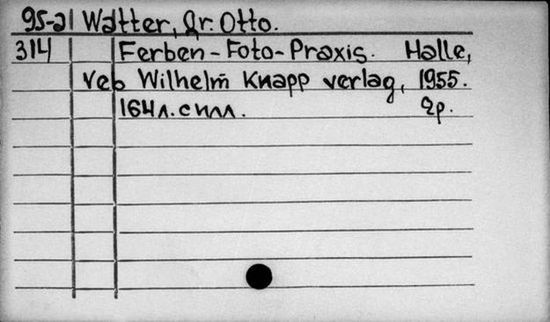 95-21 Watter, Dr. Otto.
314 Ferben-Foto-Praxis. Halle,
Veb Wilhelm Knapp verlag, 1955.
164л. с илл. 2р.